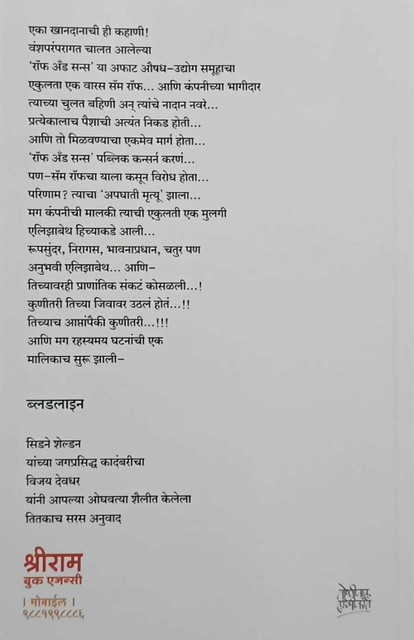 एका खानदानाची ही कहाणी!
वंशपरंपरागत चालत आलेल्या
'रॉफ अँड सन्स' या अफाट औषध-उद्योग समूहाचा
एकुलता एक वारस सॅम रॉफ... आणि कंपनीच्या भागीदार
त्याच्या चुलत बहिणी अन् त्यांचे नादान नवरे...
प्रत्येकालाच पैशाची अत्यंत निकड होती...
आणि तो मिळवण्याचा एकमेव मार्ग होता...
'रॉफ अँड सन्स' पब्लिक कन्सर्न करणं...
पण-सॅम रॉफचा याला कसून विरोध होता...
परिणाम? त्याचा 'अपघाती मृत्यू' झाला...
मग कंपनीची मालकी त्याची एकुलती एक मुलगी
एलिझाबेथ हिच्याकडे आली...
रूपसुंदर, निरागस, भावनाप्रधान, चतुर पण
अनुभवी एलिझाबेथ... आणि-
तिच्यावरही प्राणांतिक संकटं कोसळली...!
कुणीतरी तिच्या जिवावर उठलं होतं...!!
तिच्याच आप्तांपैकी कुणीतरी...!!!
आणि मग रहस्यमय घटनांची एक
मालिकाच सुरू झाली-
ब्लडलाइन
सिडने शेल्डन
यांच्या जगप्रसिद्ध कादंबरीचा
विजय देवधर
यांनी आपल्या ओघवत्या शैलीत केलेला
तितकाच सरस अनुवाद
श्रीराम
बुक एजन्सी
। मोबाईल ।
९८८१९९८८८६